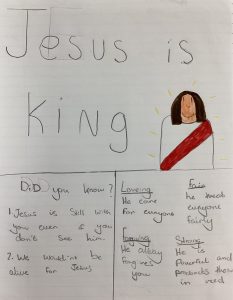 Jesus is
King
DiD you know?
1. Jesus is still with
you even if you
don't see him.
2. We woulsn't be
alive for Jesus
Loveing
He care
for everyone
Fair
he treat
everyone
fairly
Forgiving
He alway
forgives
you
Strong
He is
Powerful and
protects those
in need